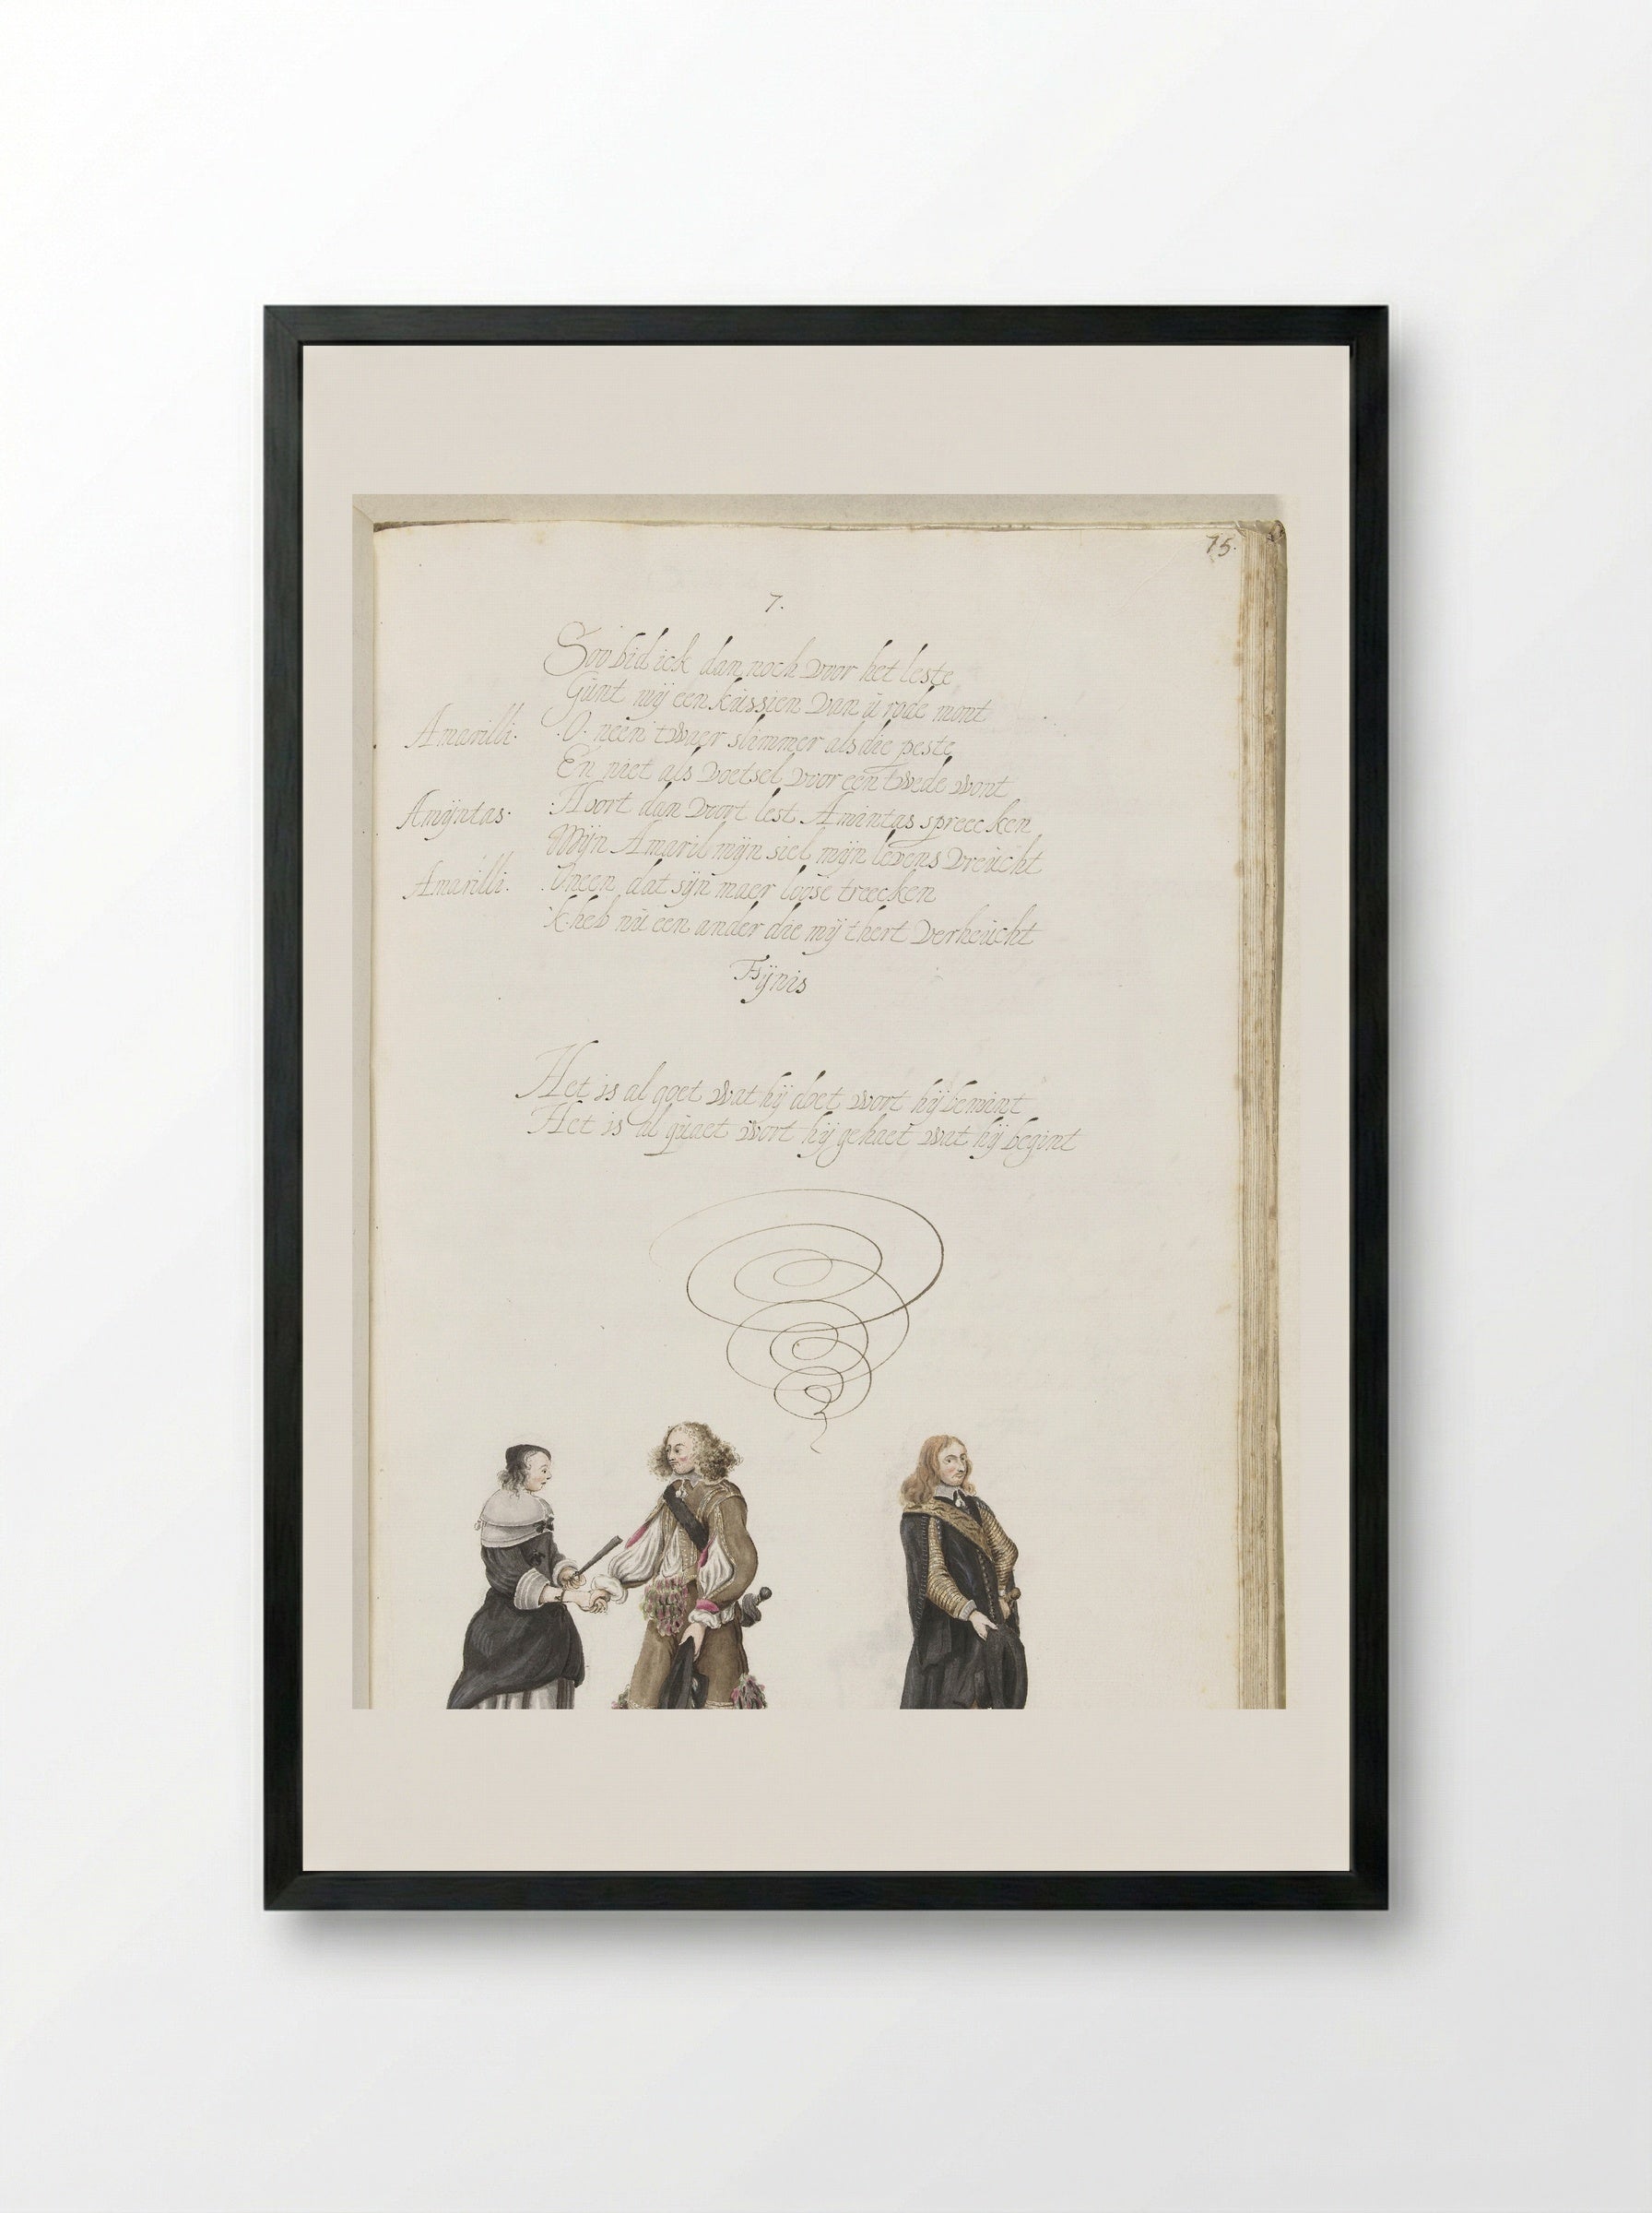 75.
7.
Soo bid ick dan noch voor het leste
Gunt mij een kussien van u rode mont
Amarilli. O neen twaer slimmer als die peste
En niet als voetsel voor een twede wont
Amÿntas. Hoort dan voort lest Amintas spreecken
Mijn Amaril mijn siel mijn levens vreucht
Amarilli. O neen dat sijn maer loose treecken
k heb nu een ander die mij thert verheucht
Fÿnis
Het is al goet wat hij doet wort hij bemint
Het is al quaet wort hij gehaet wat hij begint